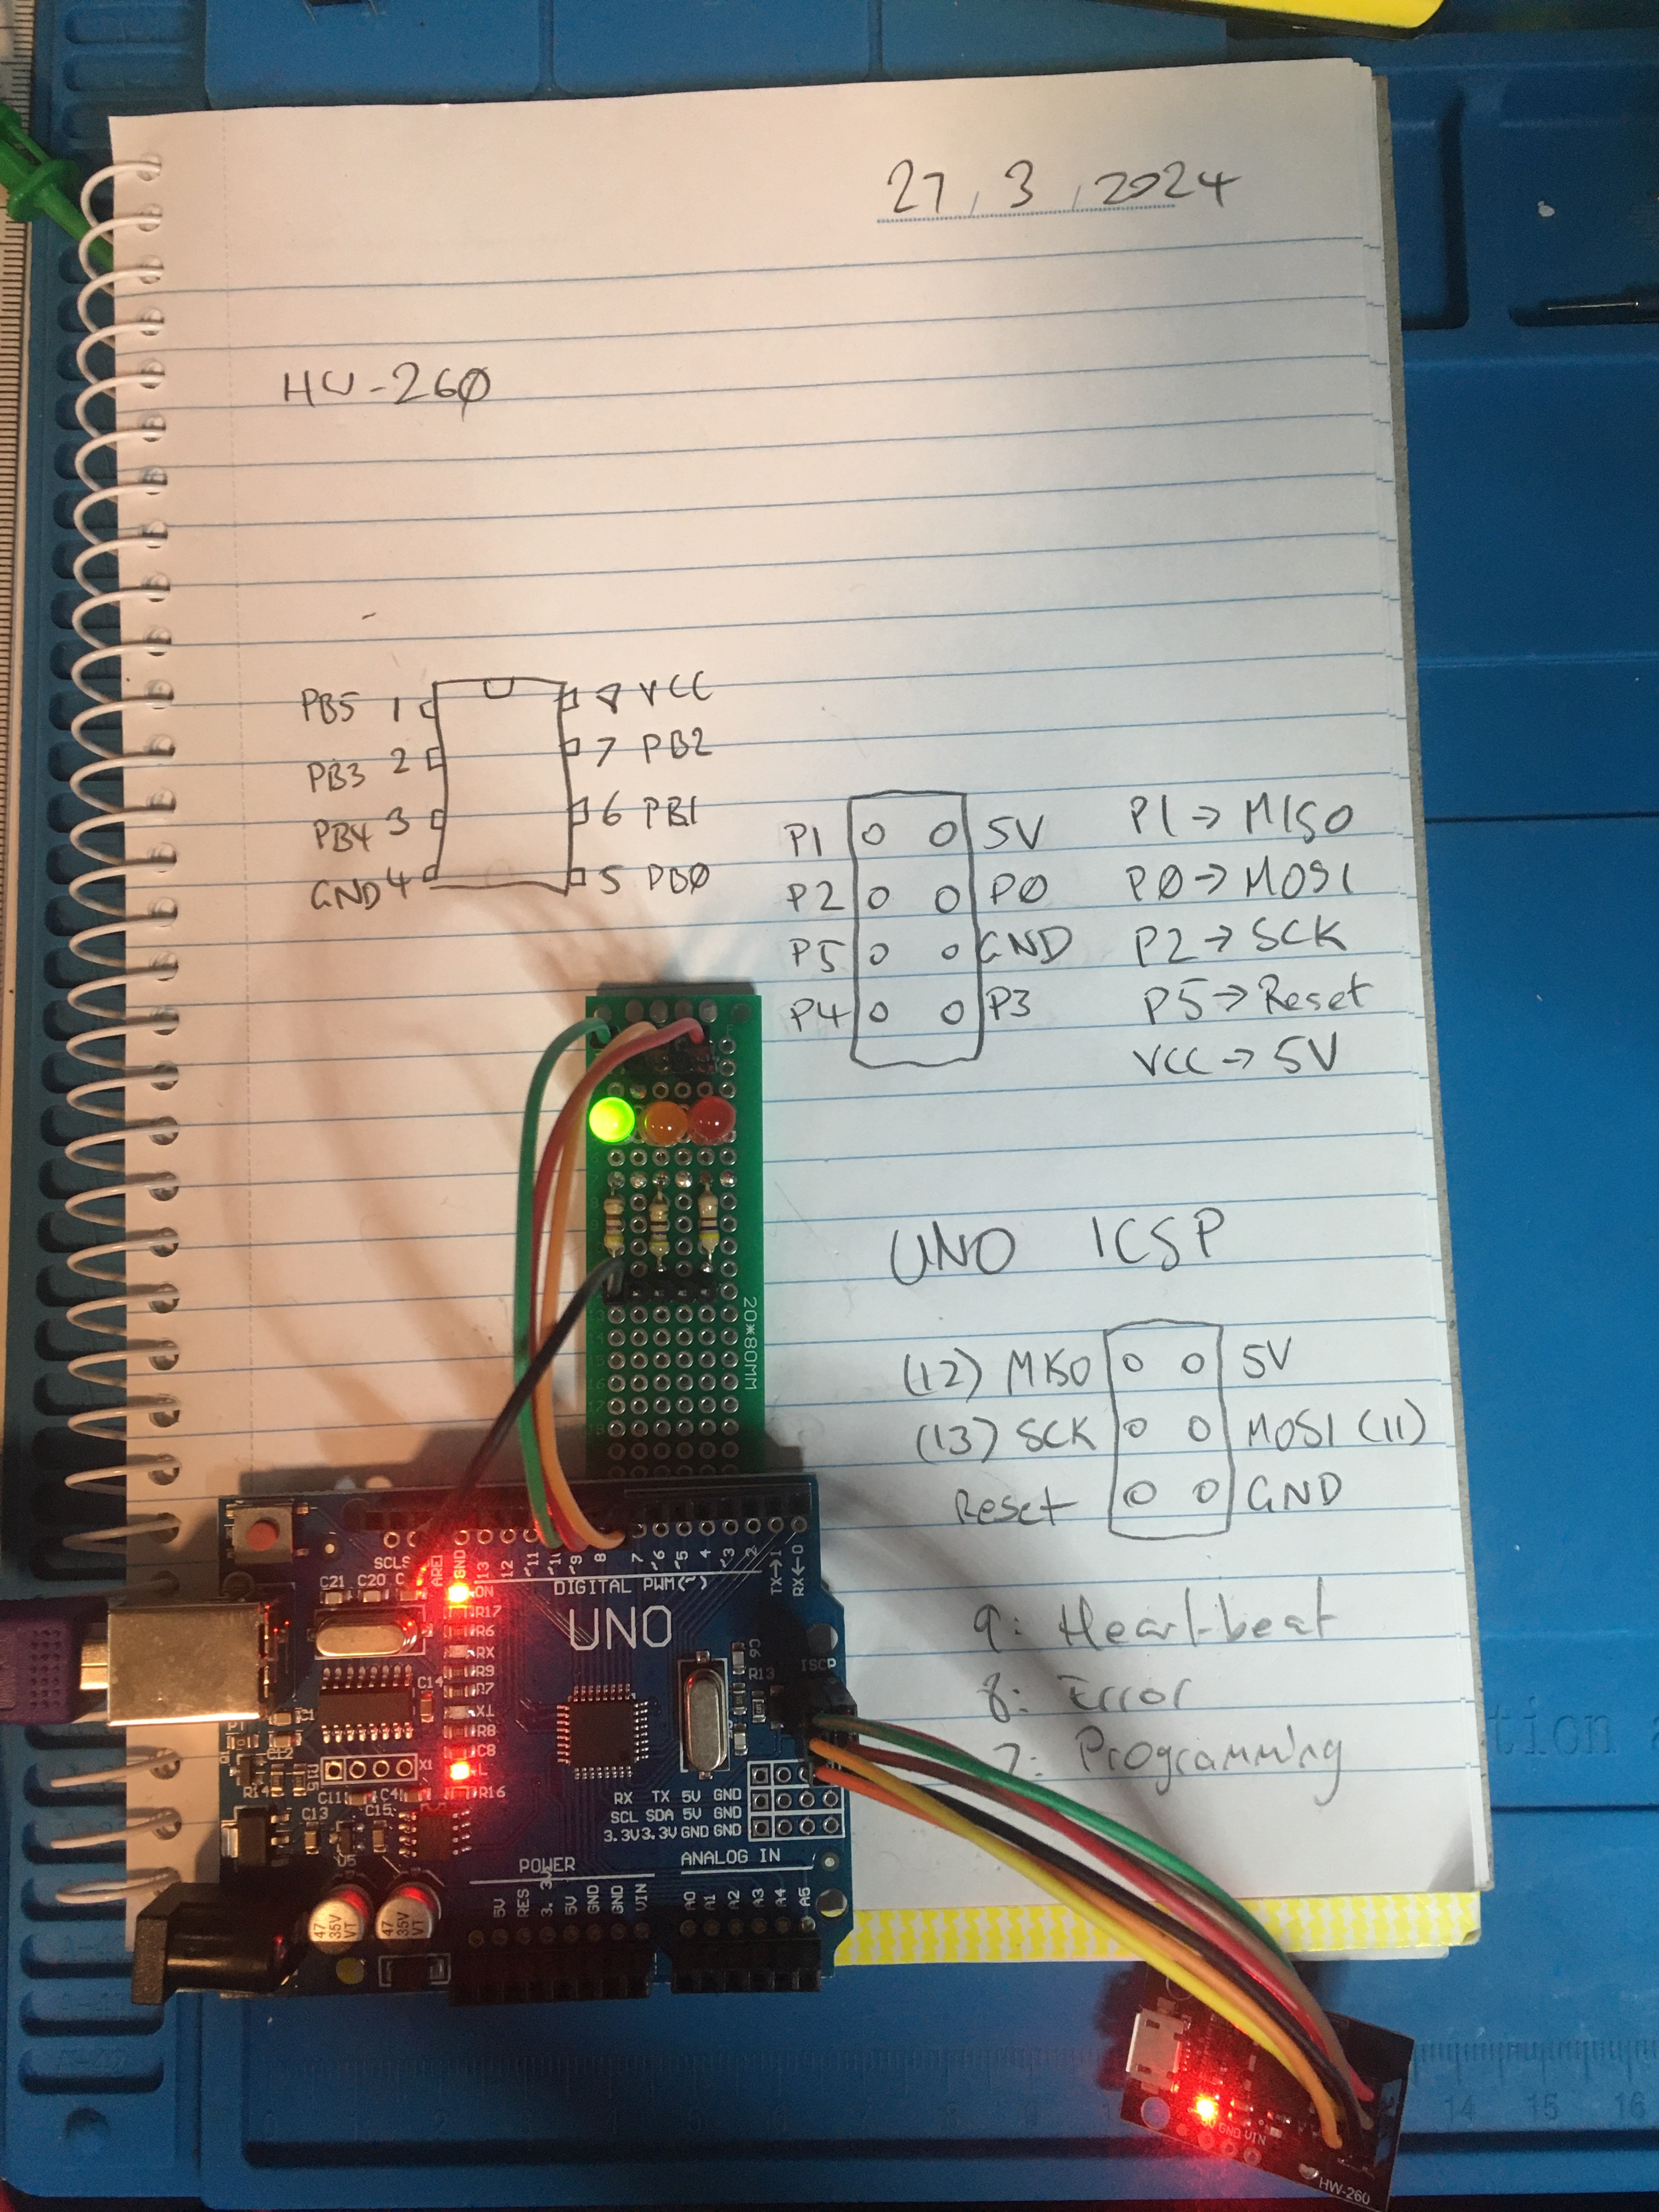 27.3.2024
HW-260
PB5 1 8 VCC
PB3 2 7 PB2
PB4 3 6 PB1
GND 4 5 PB0
P1 5V P1→MISO
P2 P0 P0→MOSI
P5 GND P2→SCK
P4 P3 P5→Reset
VCC→5V
UNO ICSP
(12) MISO 5V
(13) SCK MOSI (11)
Reset GND
9: Heartbeat
8: Error
7: Programming
20*80MM
SCL
AREF
GND
13
12
~11
~9
8
7
~6
~5
4
~3
2
TX→1
RX←0
DIGITAL PWM(~)
UNO
C21 C20
ON
R17
R6
RX
R9
R7
TX
R8
C8
L
R16
C14
X1
R14
R15
C11
C4
C13
C15
C6
R13
RX TX 5V GND
SCL SDA 5V GND
3.3V 3.3V GND GND
POWER
ANALOG IN
5V
RES
5V
GND
GND
VIN
A0
A1
A2
A3
A4
A5
47
35V
VT
47
35V
VT
GND VIN
HW-260
tion
14 15 16